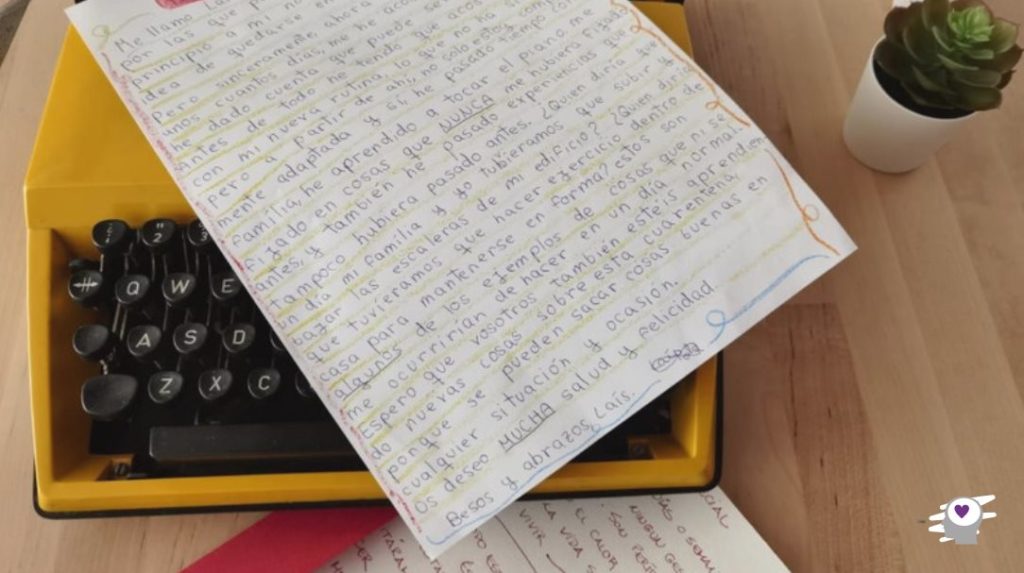 Me llamo
por las que
principio a mi no
idea de quedarse en
Pero sinceramente, ahora
unos cuantos días, me he
he dado cuenta que puede ser
antes de todo he tenido que
con mi nueva rutina, lo que no ha
pero a partir de ahí, no solo estoy
mente adaptada y si, he pasado tiempo con
familia, he aprendido a tocar el piano, me
fijado en cosas que NUNCA me hubiera fijado
antes, y también he pasado experiencias que
tampoco hubiera pasado antes. ¿Quien diría que
un día mi familia y yo tubieramos que subir y
bajar las escaleras de mi edificio? ¿Quien diría
que tuvieramos que hacer ejercicio dentro de
casa para mantenerse en forma? estos son
algunos de los ejemplos de cosas que ni se
me ocurrirían de hacer en un día normal.
Espero que vosotros también esteis aprendien-
do nuevas cosas sobre esta cuarentena,
porque se pueden sacar cosas buenas en
cualquier situación y ocasión.
Os deseo MUCHA salud y felicidad
Besos y abrazos, Laís.
2 3
Q W E
A S D
Z X C
LA VIDA
VIVIR
EL CALOR